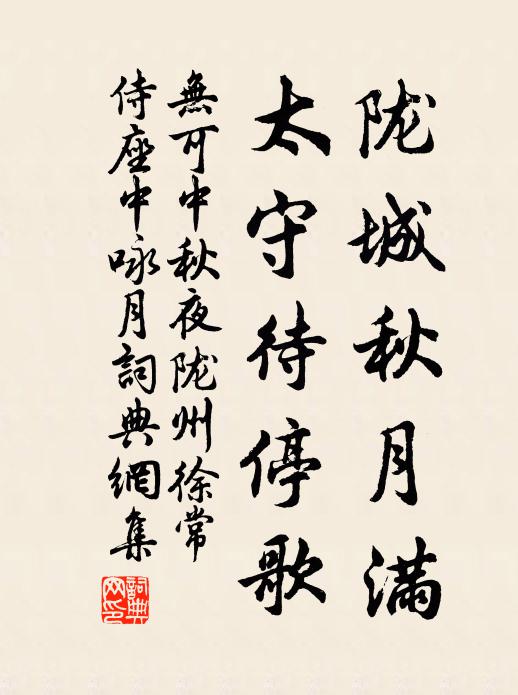 陇城秋月满
太守待停歌
無可中秋夜陇州徐常
侍座中咏月詞典網集
詞典网印